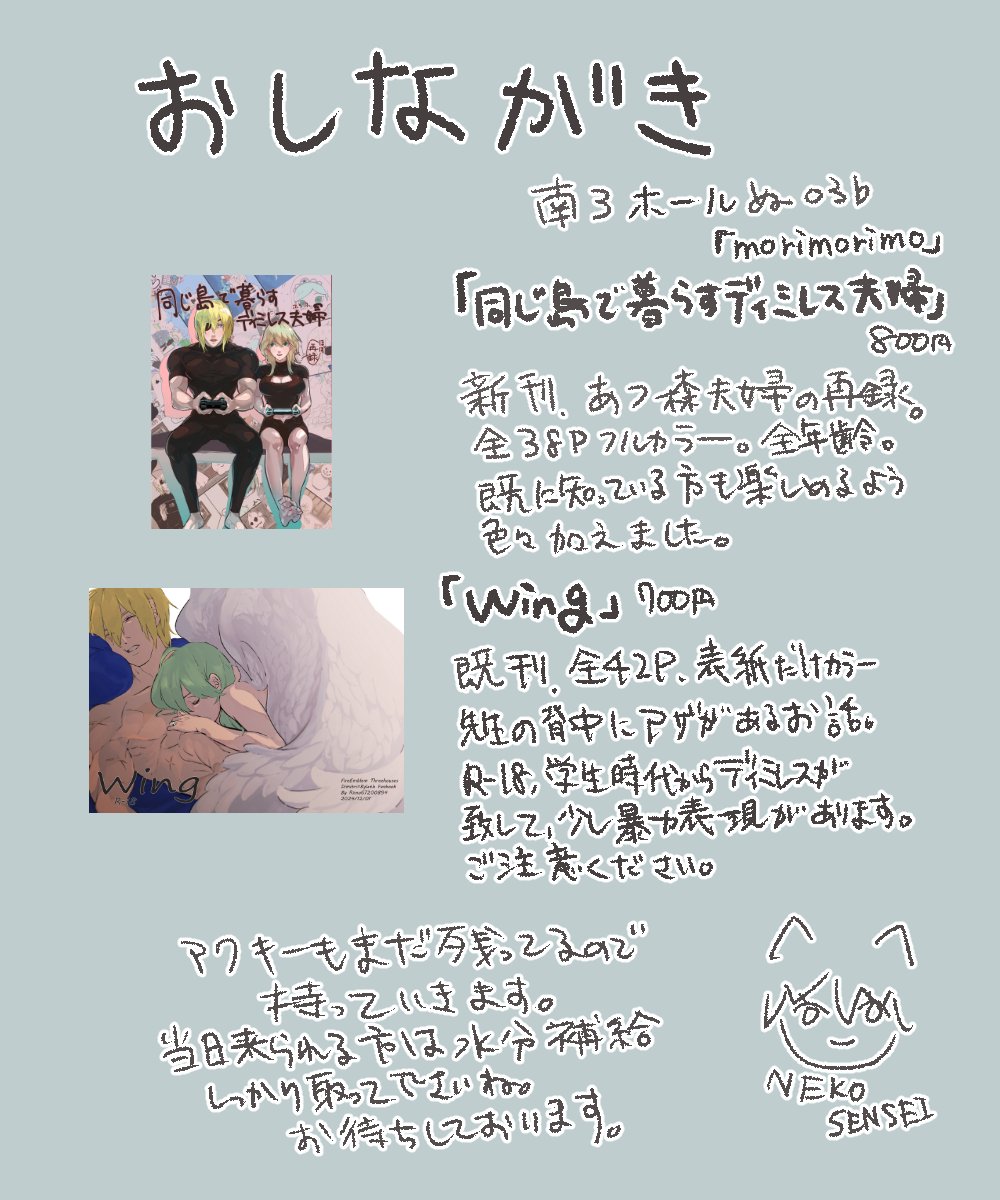 おしながき
南3ホールぬ03b
「morimorimo」
同じ島で暮らす
ディミレス夫婦
再録
「同じ島で暮らすディミレス夫婦」
800円
新刊、あつ森夫婦の再録。
全38Pフルカラー。全年齢。
既に知っている方も楽しめるよう
色々加えました。
Wing
R-18
FireEmblem Threehouses
「Wing」700円
既刊、全42P、表紙だけカラー
先生の背中にアザがあるお話。
R-18,学生時代からディミレスが
致して、少し暴力表現があります。
ご注意ください。
アクキーもまだ残ってるので
持っていきます。
当日来られる方は水分補給
しっかり取って下さいね。
お待ちしております。
NEKO
SENSEI